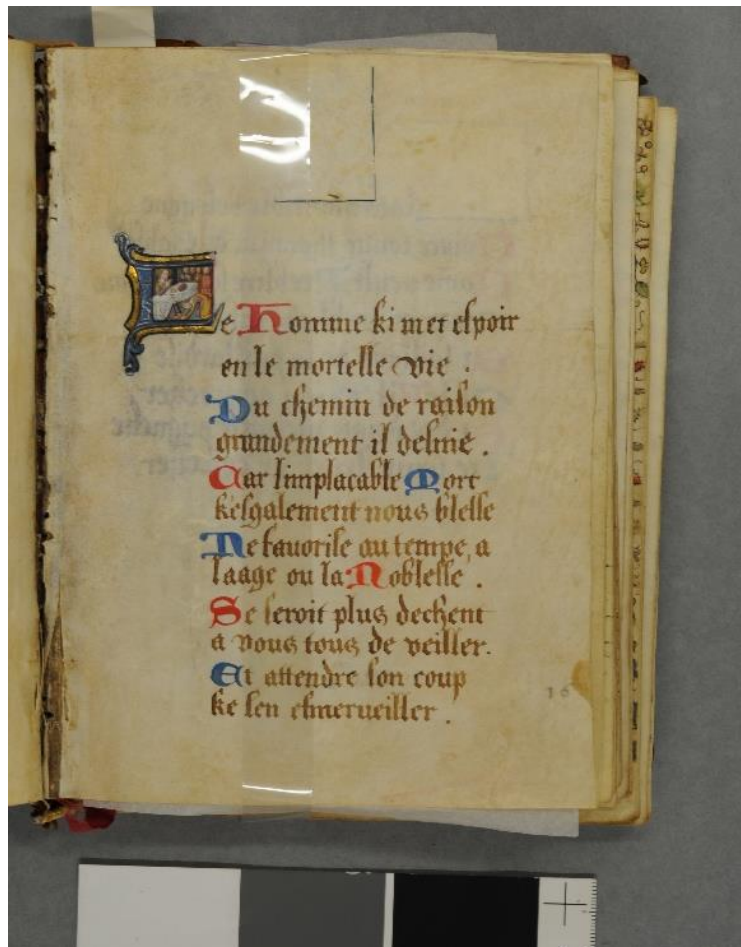 Le Homme ki met espoir
en le mortelle vie .
Du chemin de raison
grandement il desuie .
Car limplacable Mort
kesgalement nous blesse
Ne fauorise au temps, a
laage ou la Noblesse .
Se seroit plus dechent
a vous tous de veiller.
Et attendre son coup
ke sen esmerueiller .
16